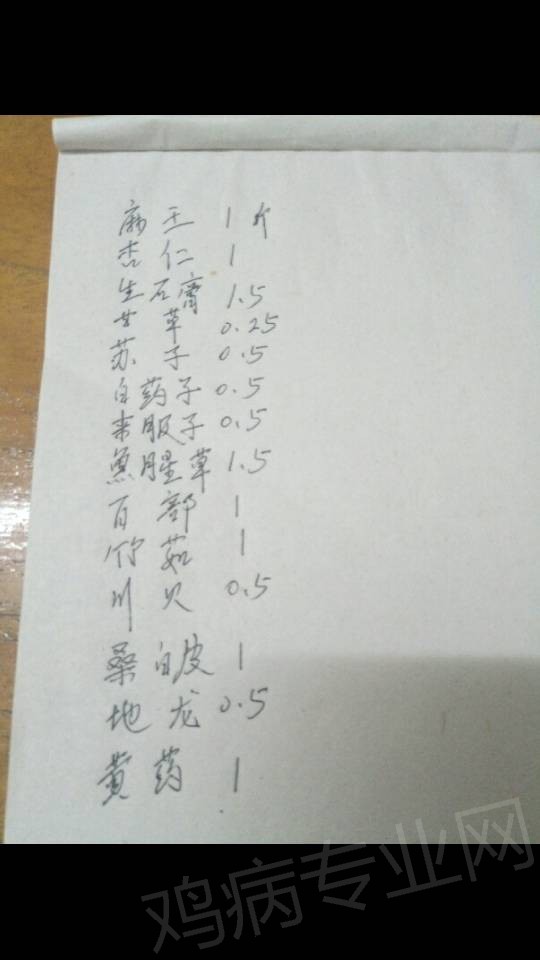 麻王 1斤
杏仁 1
生石膏 1.5
甘草 0.25
苏子 0.5
白药子 0.5
来服子 0.5
鱼腥草 1.5
百部 1
竹茹 1
川贝 0.5
桑白皮 1
地龙 0.5
黄药 1
鸡病专业网